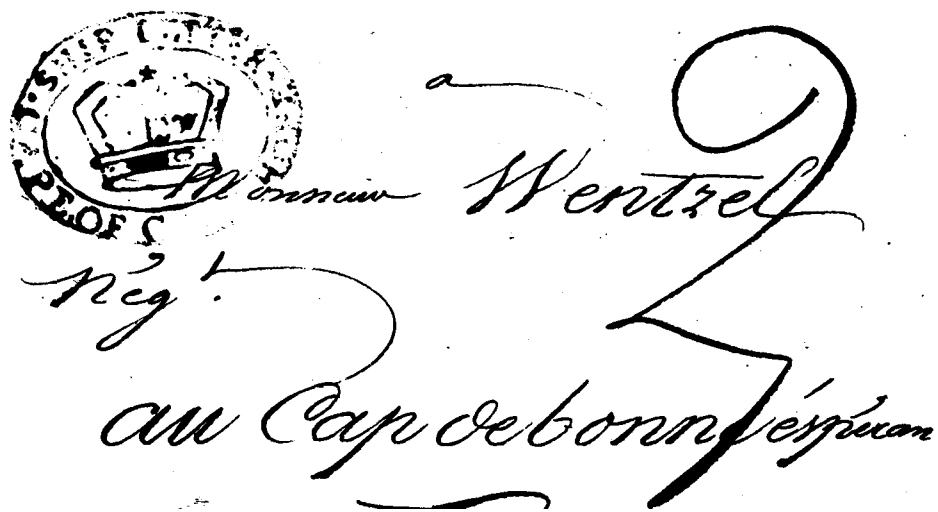 SHIP LETTER
PEOFS
a
2
Monsieur Wentzel
Nég.t
au Cap de bonne éspéran